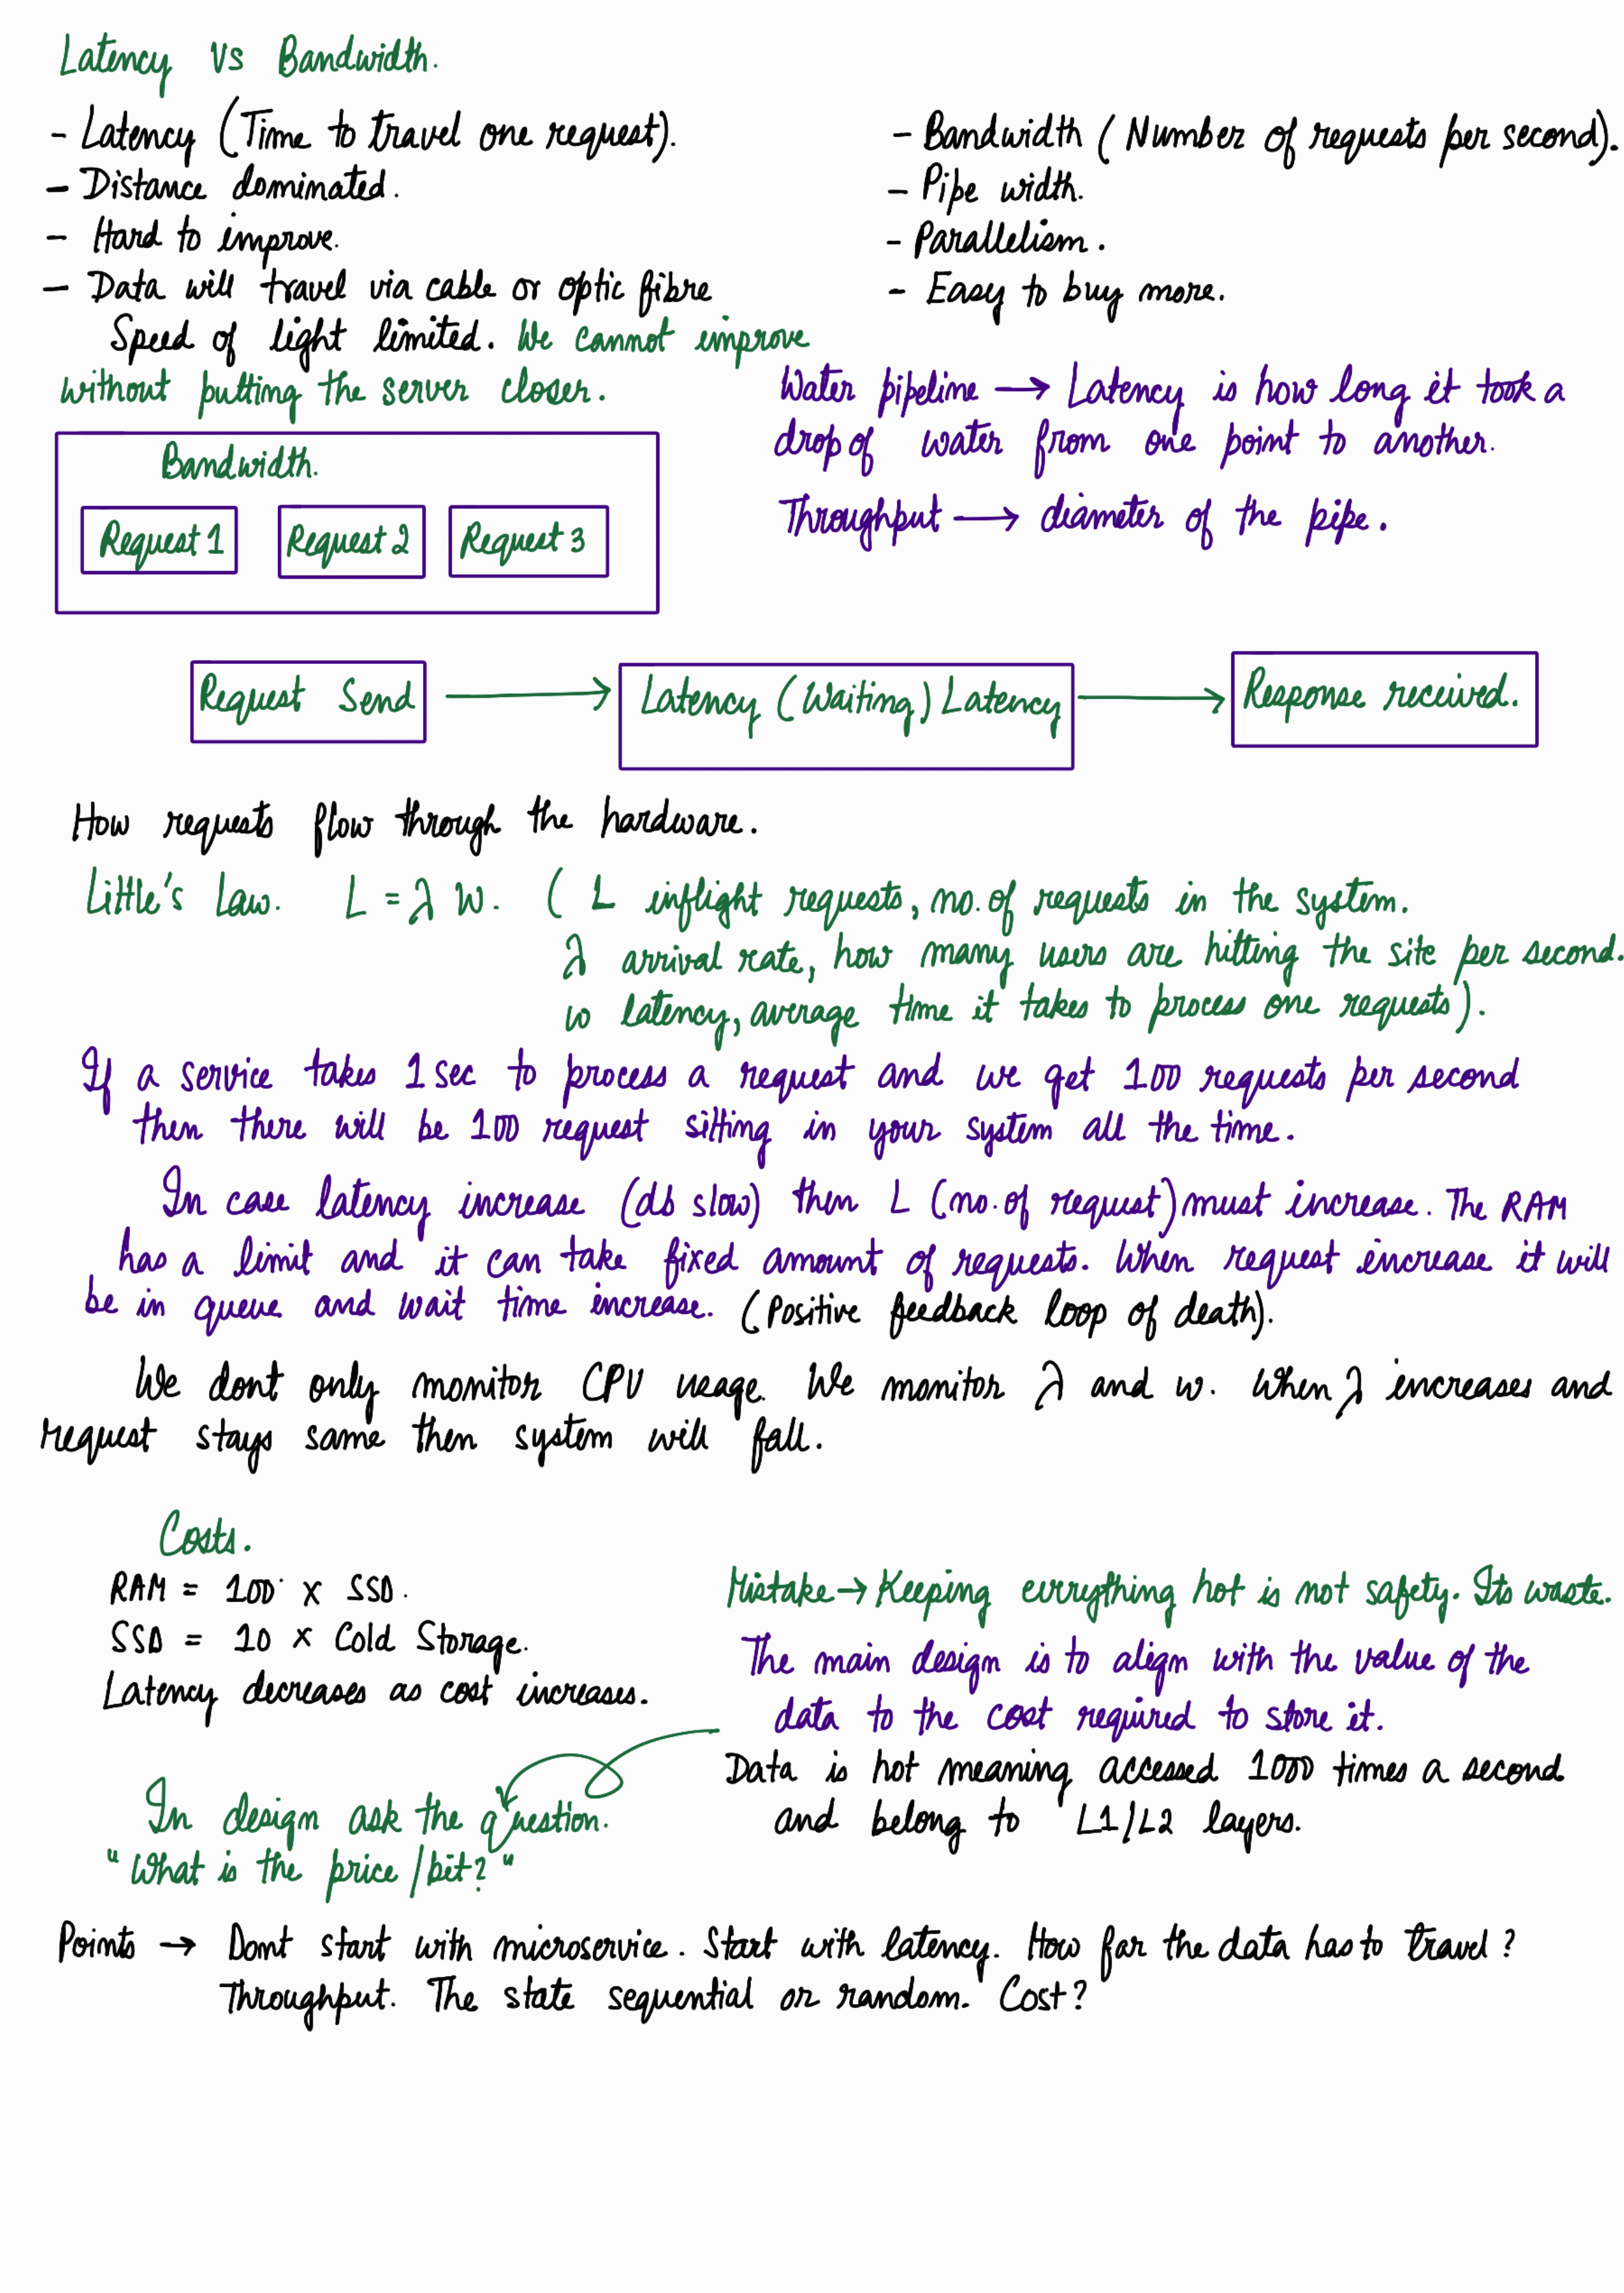 Latency Vs Bandwidth.
- Latency (Time to travel one request).
- Distance dominated.
- Hard to improve.
- Data will travel via cable or optic fibre
Speed of light limited. We cannot improve
without putting the server closer.
- Bandwidth (Number of requests per second).
- Pipe width.
- Parallelism.
- Easy to buy more.
Water pipeline → Latency is how long it took a
drop of water from one point to another.
Throughput → diameter of the pipe.
Bandwidth.
Request 1 Request 2 Request 3
Request Send → Latency (Waiting) Latency → Response received.
How requests flow through the hardware.
Little's Law. L = λ W. ( L inflight requests, no. of requests in the system.
λ arrival rate, how many users are hitting the site per second.
w latency, average time it takes to process one requests).
If a service takes 1 sec to process a request and we get 100 requests per second
then there will be 100 request sitting in your system all the time.
In case latency increase (db slow) then L (no. of request) must increase. The RAM
has a limit and it can take fixed amount of requests. When request increase it will
be in queue and wait time increase. (Positive feedback loop of death).
We dont only monitor CPU usage. We monitor λ and w. When λ increases and
request stays same then system will fall.
Costs.
RAM = 100 x SSD.
SSD = 10 x Cold Storage.
Latency decreases as cost increases.
Mistake → Keeping everything hot is not safety. Its waste.
The main design is to align with the value of the
data to the cost required to store it.
Data is hot meaning accessed 1000 times a second
and belong to L1/L2 layers.
In design ask the question.
"What is the price/bit?"
Points → Dont start with microservice. Start with latency. How far the data has to travel?
Throughput. The state sequential or random. Cost?